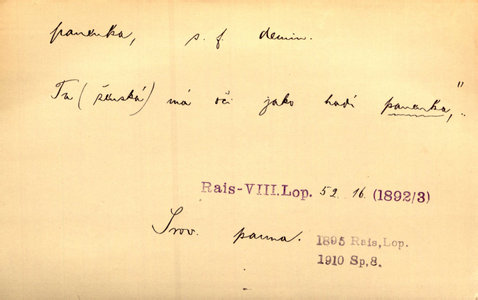 panenka, s. f. demin.
Ta (ženská) má oči jako hadí panenka,"..
Rais-VIII.Lop. 52. 16. (1892/3)
Srov. panna. 1895 Rais,Lop.
1910 Sp,8.